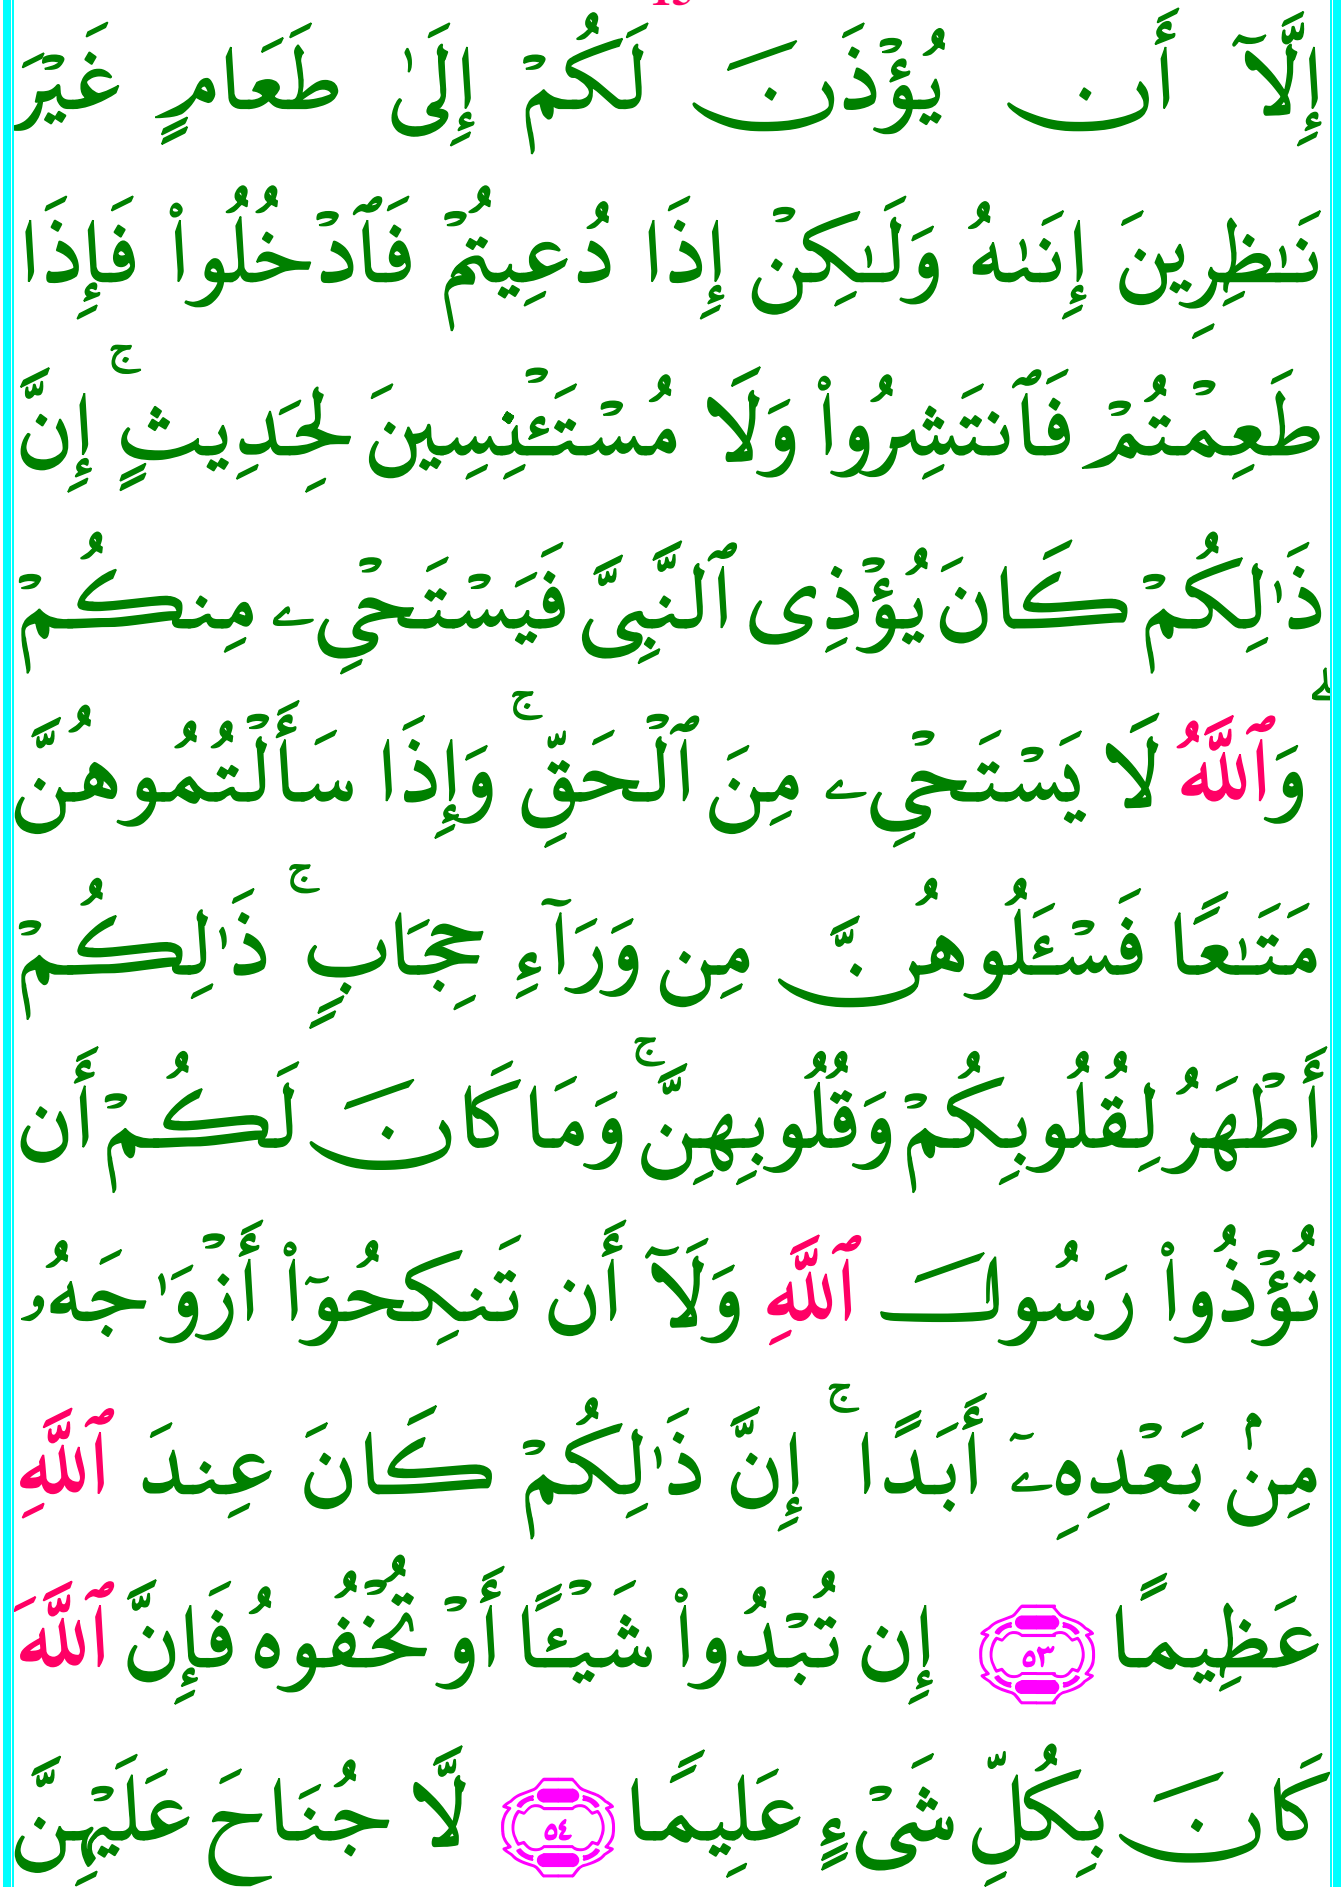 إِلَّآ أَن يُؤْذَنَ لَكُمْ إِلَىٰ طَعَامٍ غَيْرَ
نَـٰظِرِينَ إِنَىٰهُ وَلَـٰكِنْ إِذَا دُعِيتُمْ فَٱدْخُلُوا۟ فَإِذَا
طَعِمْتُمْ فَٱنتَشِرُوا۟ وَلَا مُسْتَـْٔنِسِينَ لِحَدِيثٍ ۚ إِنَّ
ذَٰلِكُمْ كَانَ يُؤْذِى ٱلنَّبِىَّ فَيَسْتَحْىِۦ مِنكُمْ
ۖ وَٱللَّهُ لَا يَسْتَحْىِۦ مِنَ ٱلْحَقِّ ۚ وَإِذَا سَأَلْتُمُوهُنَّ
مَتَـٰعًا فَسْـَٔلُوهُنَّ مِن وَرَآءِ حِجَابٍ ۚ ذَٰلِكُمْ
أَطْهَرُ لِقُلُوبِكُمْ وَقُلُوبِهِنَّ ۚ وَمَا كَانَ لَكُمْ أَن
تُؤْذُوا۟ رَسُولَ ٱللَّهِ وَلَآ أَن تَنكِحُوٓا۟ أَزْوَٰجَهُۥ
مِنۢ بَعْدِهِۦٓ أَبَدًا ۚ إِنَّ ذَٰلِكُمْ كَانَ عِندَ ٱللَّهِ
عَظِيمًا ٥٣ إِن تُبْدُوا۟ شَيْـًٔا أَوْ تُخْفُوهُ فَإِنَّ ٱللَّهَ
كَانَ بِكُلِّ شَىْءٍ عَلِيمًا ٥٤ لَّا جُنَاحَ عَلَيْهِنَّ